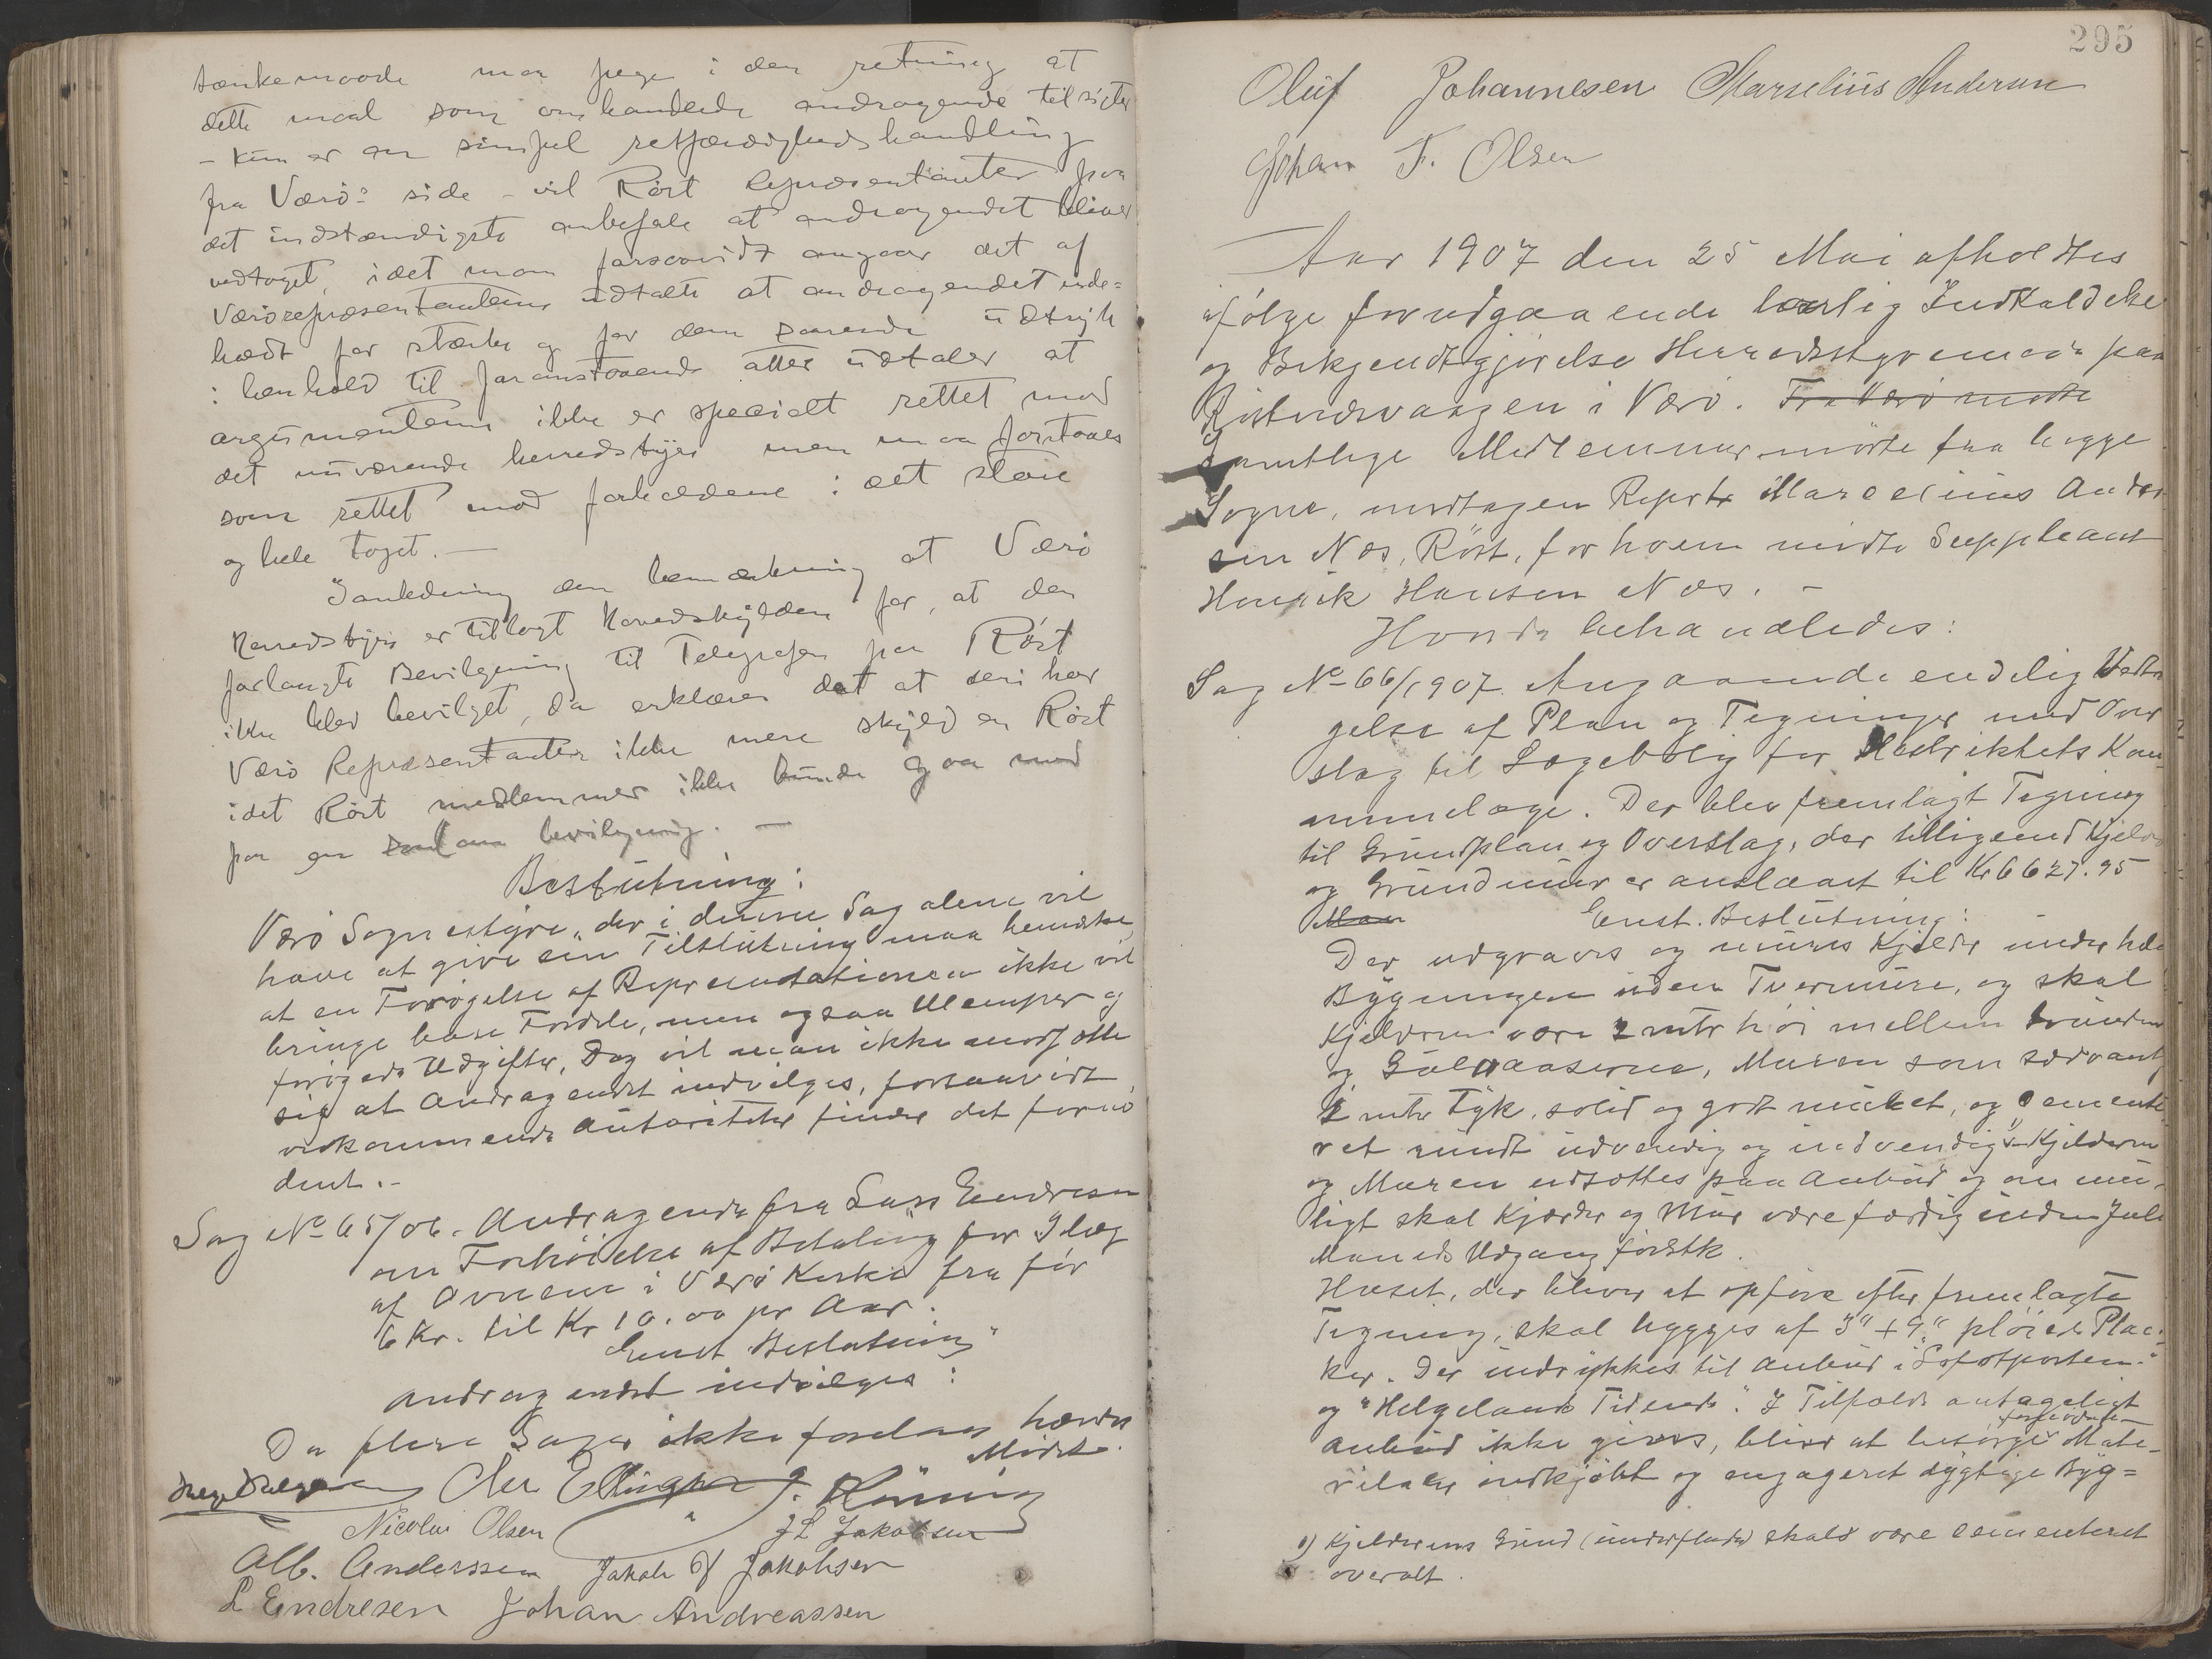 tænkemaade maa pege i den retning at
dette maal som omhandlede andragende tilsigter
- kun er en simpel retfærdighedshandling
fra Værö's side - vil Röst Repræsentanter paa
det indstændigste anbefale at andragendet bliver
vedtaget, idet man forsaavidt angaar det af
Værörepræsentanterne udtalte at andragendet inde=
hædt for stærke og for dem saarende udtryk
i henhold til foranstaaende atter udtaler at
argumenterne ikke er specielt rettet mod
det nuværende herredstyre men maa forstaaes
som rettet mod forholdene i det store
og hele taget. —
I anledning den bemærkning at Værö
Herredstyre er tillagt Hovedskylden for, at den
forlangte Bevilgning til Telegrafen paa Röst
ikke blev bevilget, da erklæres det at deri har
Værö Repræsentanter ikke mere skyld en Röst
idet Röst medlemmer ikke kunde gaa med
paa en saadan bevilgning. —
Beslutning:
Værö Sognestyre, der i denne Sag alene vil
have at give sin Tilslutning maa bemærke
at en Forøgelse af Representationen ikke vil
bringe bare Fordele, men ogsaa Ulemper og
forøgede Udgifter, Dog vil man ikke modsætte
sig at Andragendet indvilges, forsaavidt
vedkommende Autoriteter finder det fornø
dent.-
Sag No 65/06. Andragende fra Lars Endresen
om Forhöielse af Betaling for Ilæg
af Ovnene i Værö Kirke fra før
6 Kr. til Kr 10.00 pr Aar.
Enst Beslutning
Andragendet indvilges:
Da flere Sager ikke forelaa hævdes
Mödet.
J. Köning
Nicolai Olsen J L Jakobsen
Alb. Anderssen Jakob Jakobsen
L Endresen Johan Andreassen
295
Oluf Johannesen Marselius Andersen
Johan F. Olsen
Aar 1907 den 25 Mai afholdtes
ifølge forudgaaende lovlig Indkaldelse
og Bekjendtgjørelse Herredsstyremøde paa
Röstnesvaagen i Værö. Fra Værö mødte
Samtlige Medlemmer mödte fra begge
Sogne, undtagen Reprtr Marcelius Ander
sen Nes, Röst, for hvem mödte Suppleant
Henrik Hansen Nes. -
Hvorda behandledes:
Sag No 66/1907. Angaaende endelig Vedta
gelse af Plan og Tegninger med Over
slag til Lægebolig for Distriktets Kom
munelæge. Der blev fremlagt Tegning
til Grundplan og Overslag, der tilligemed Kjelder
og Grundmur er anslaaet til Kr 6627.95
Man Enst. Beslutning:
Der udgraves og mures Kjelder under hele
Bygningen uden Tvermure, og skal
Kjelderen være 2 mtr höi mellem Grunden
og Gulvaaserne, Muren som sedvanlig
½ mtr tyk, solid og godt muret, og sementi
ret rundt udvendig og indvendig 1) Kjelderen
og Muren udsættes paa Anbud og om mu-
ligt skal Kjelder og Mur være færdig inden Juli
Maaneds Udgang førstk.
Huset, der bliver at opføre efter fremlagte
Tegning, skal bygges af 3" + 9" pløiede Plan-
ker. Der indrykkes til Anbud i "Lofotposten"
og "Helgelands Tidende". I Tilfælde antageligt
Anbud ikke gives, blir at besørge fornødne Mate-
rialer indkjøbt og engageret dygtige Byg=
1) Kjelderens Grund (underfladen) skal være sementeret
overalt.